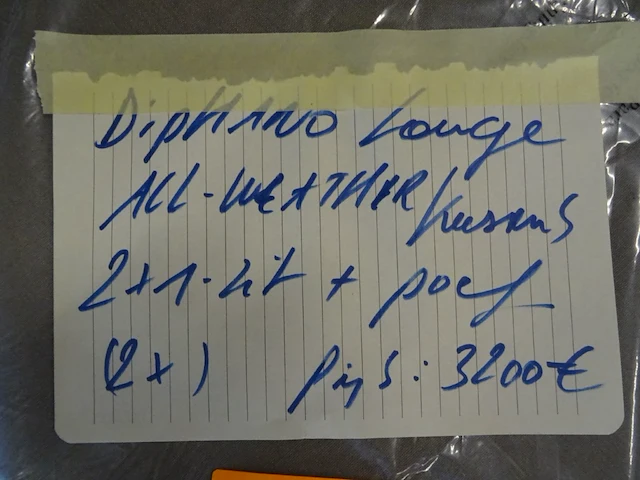 DipHANO Louge
ALL-WEATHER Kussens
2x1-zit + poef
(2x) Prijs: 3200€